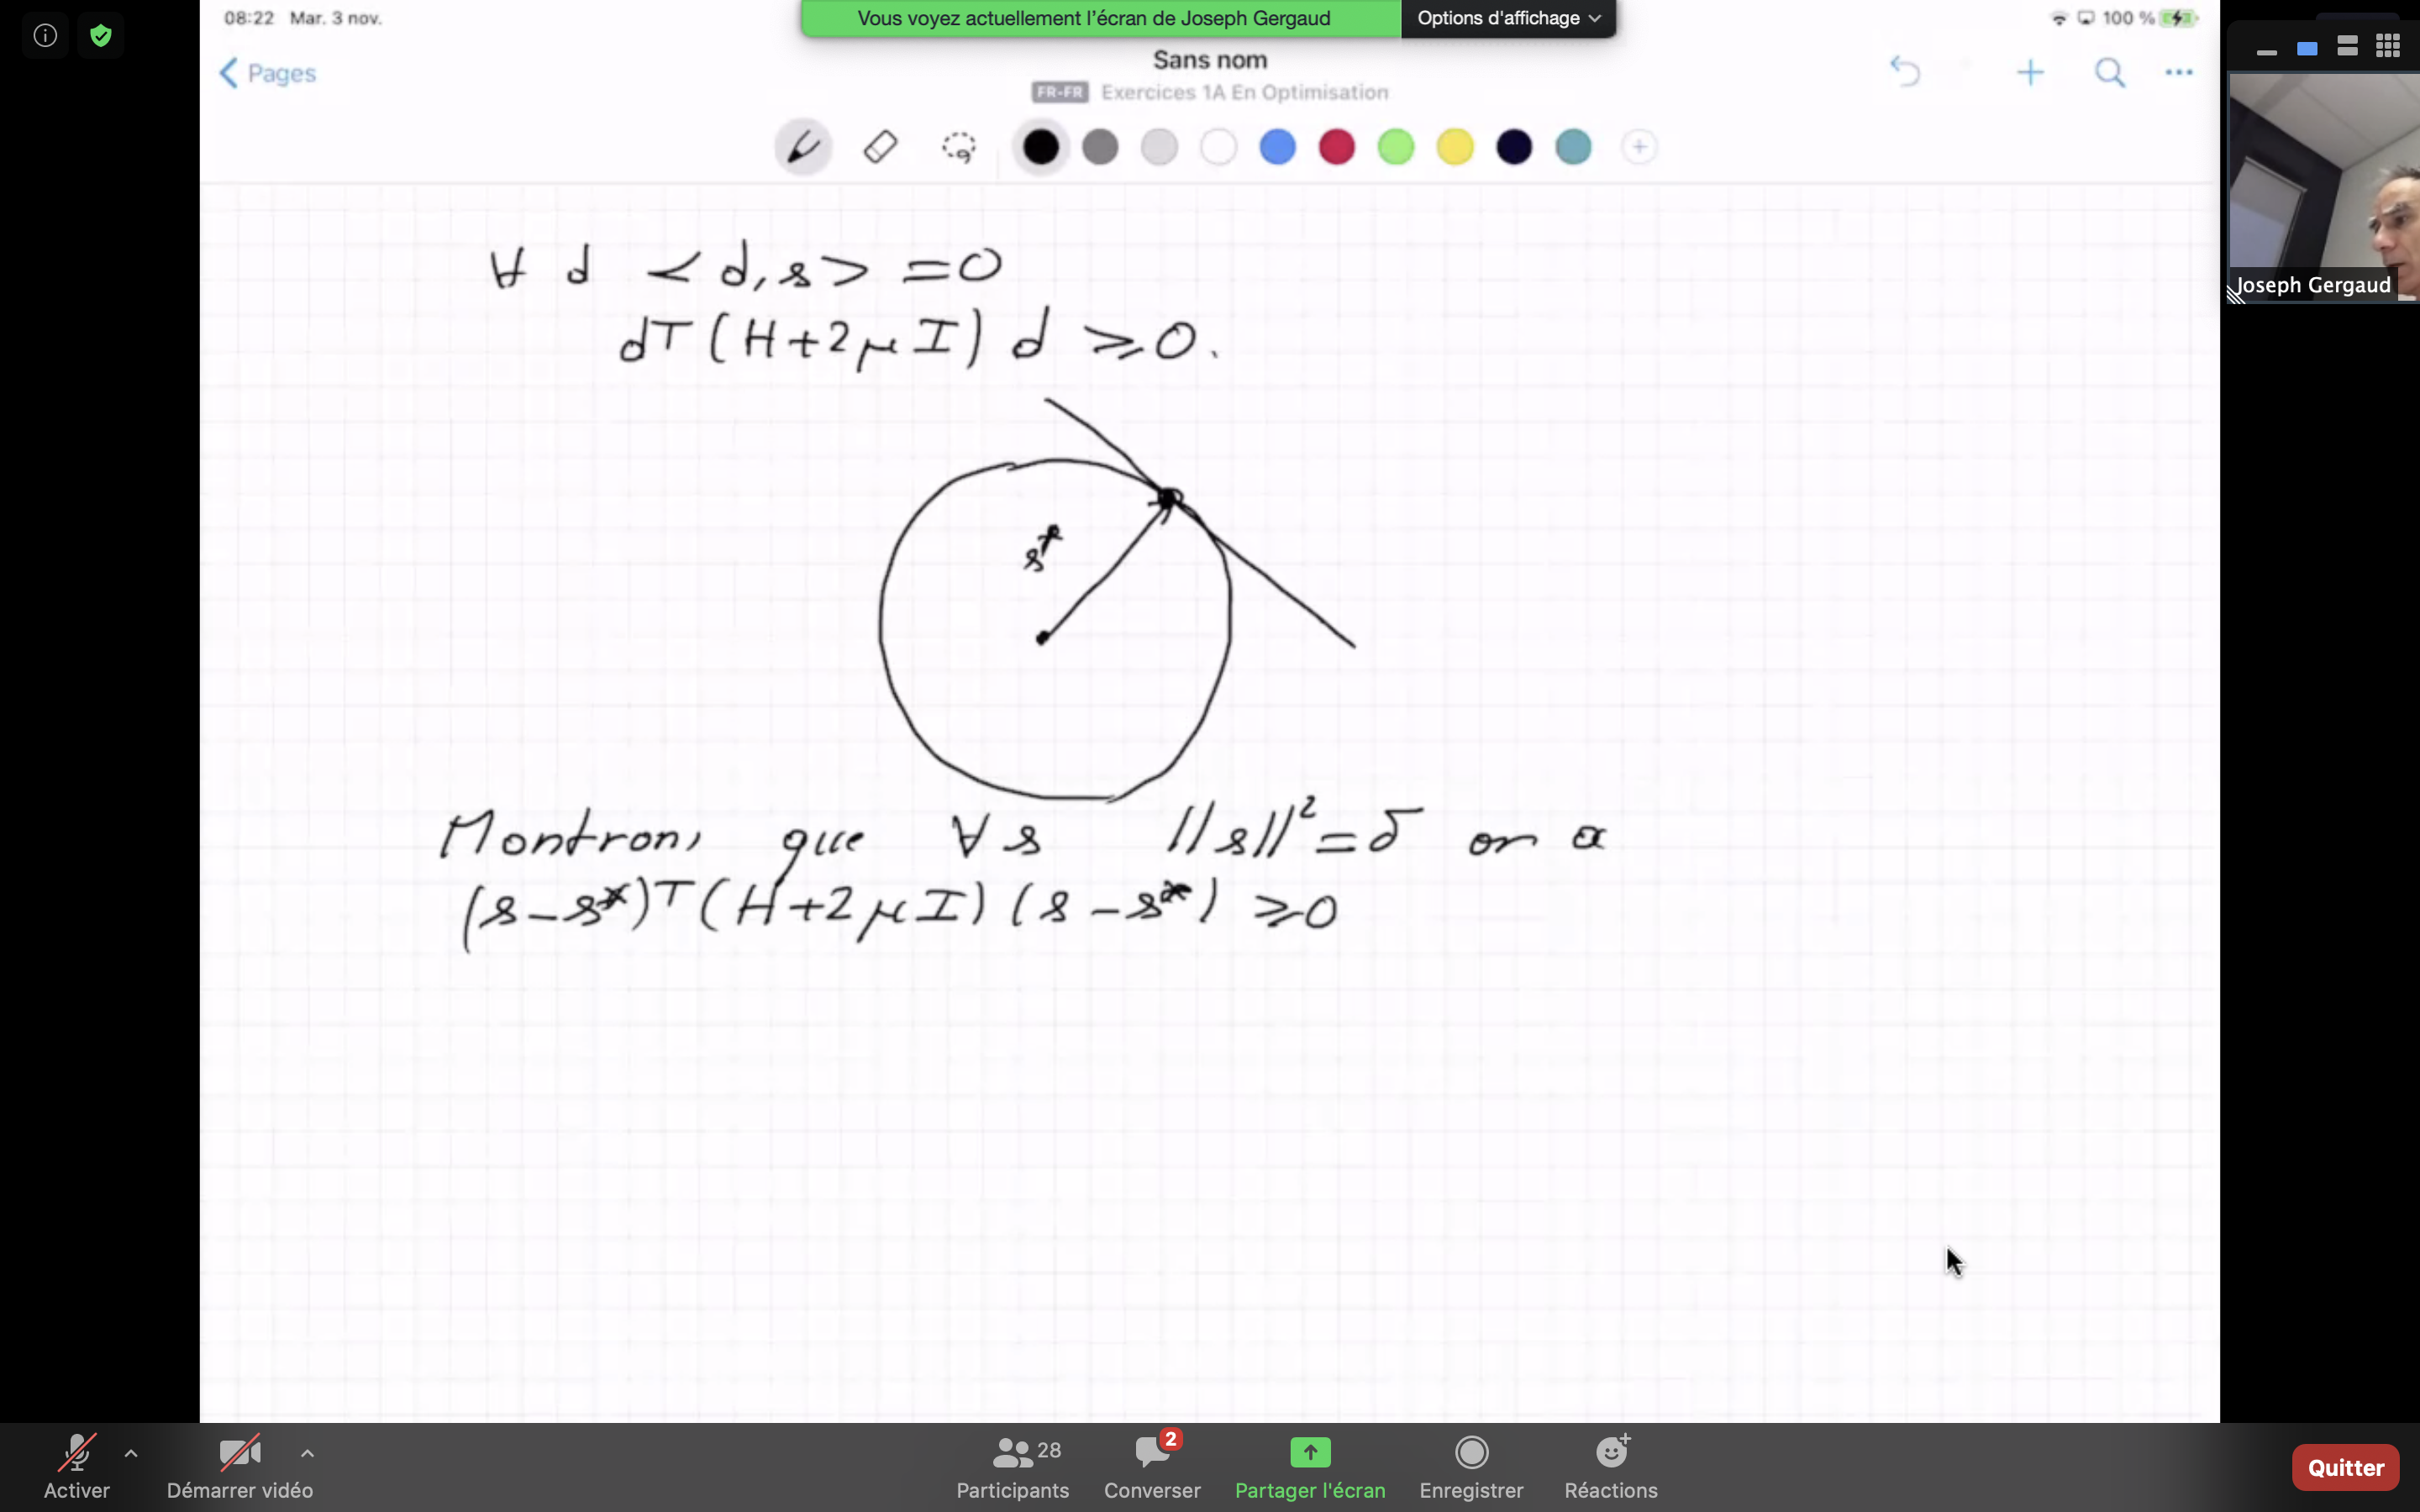 08:22 Mar. 3 nov.
Vous voyez actuellement l'écran de Joseph Gergaud
Options d'affichage
100 %
Pages
Sans nom
FR-FR Exercices 1A En Optimisation
Joseph Gergaud
∀ d <d,s> =0
dᵀ(H+2μI) d ≥0.
s*
Montrons que ∀ s ||s||²=δ on a
(s-s*)ᵀ(H+2μI)(s-s*) ≥0
Activer
Démarrer vidéo
28
Participants
2
Converser
Partager l'écran
Enregistrer
Réactions
Quitter